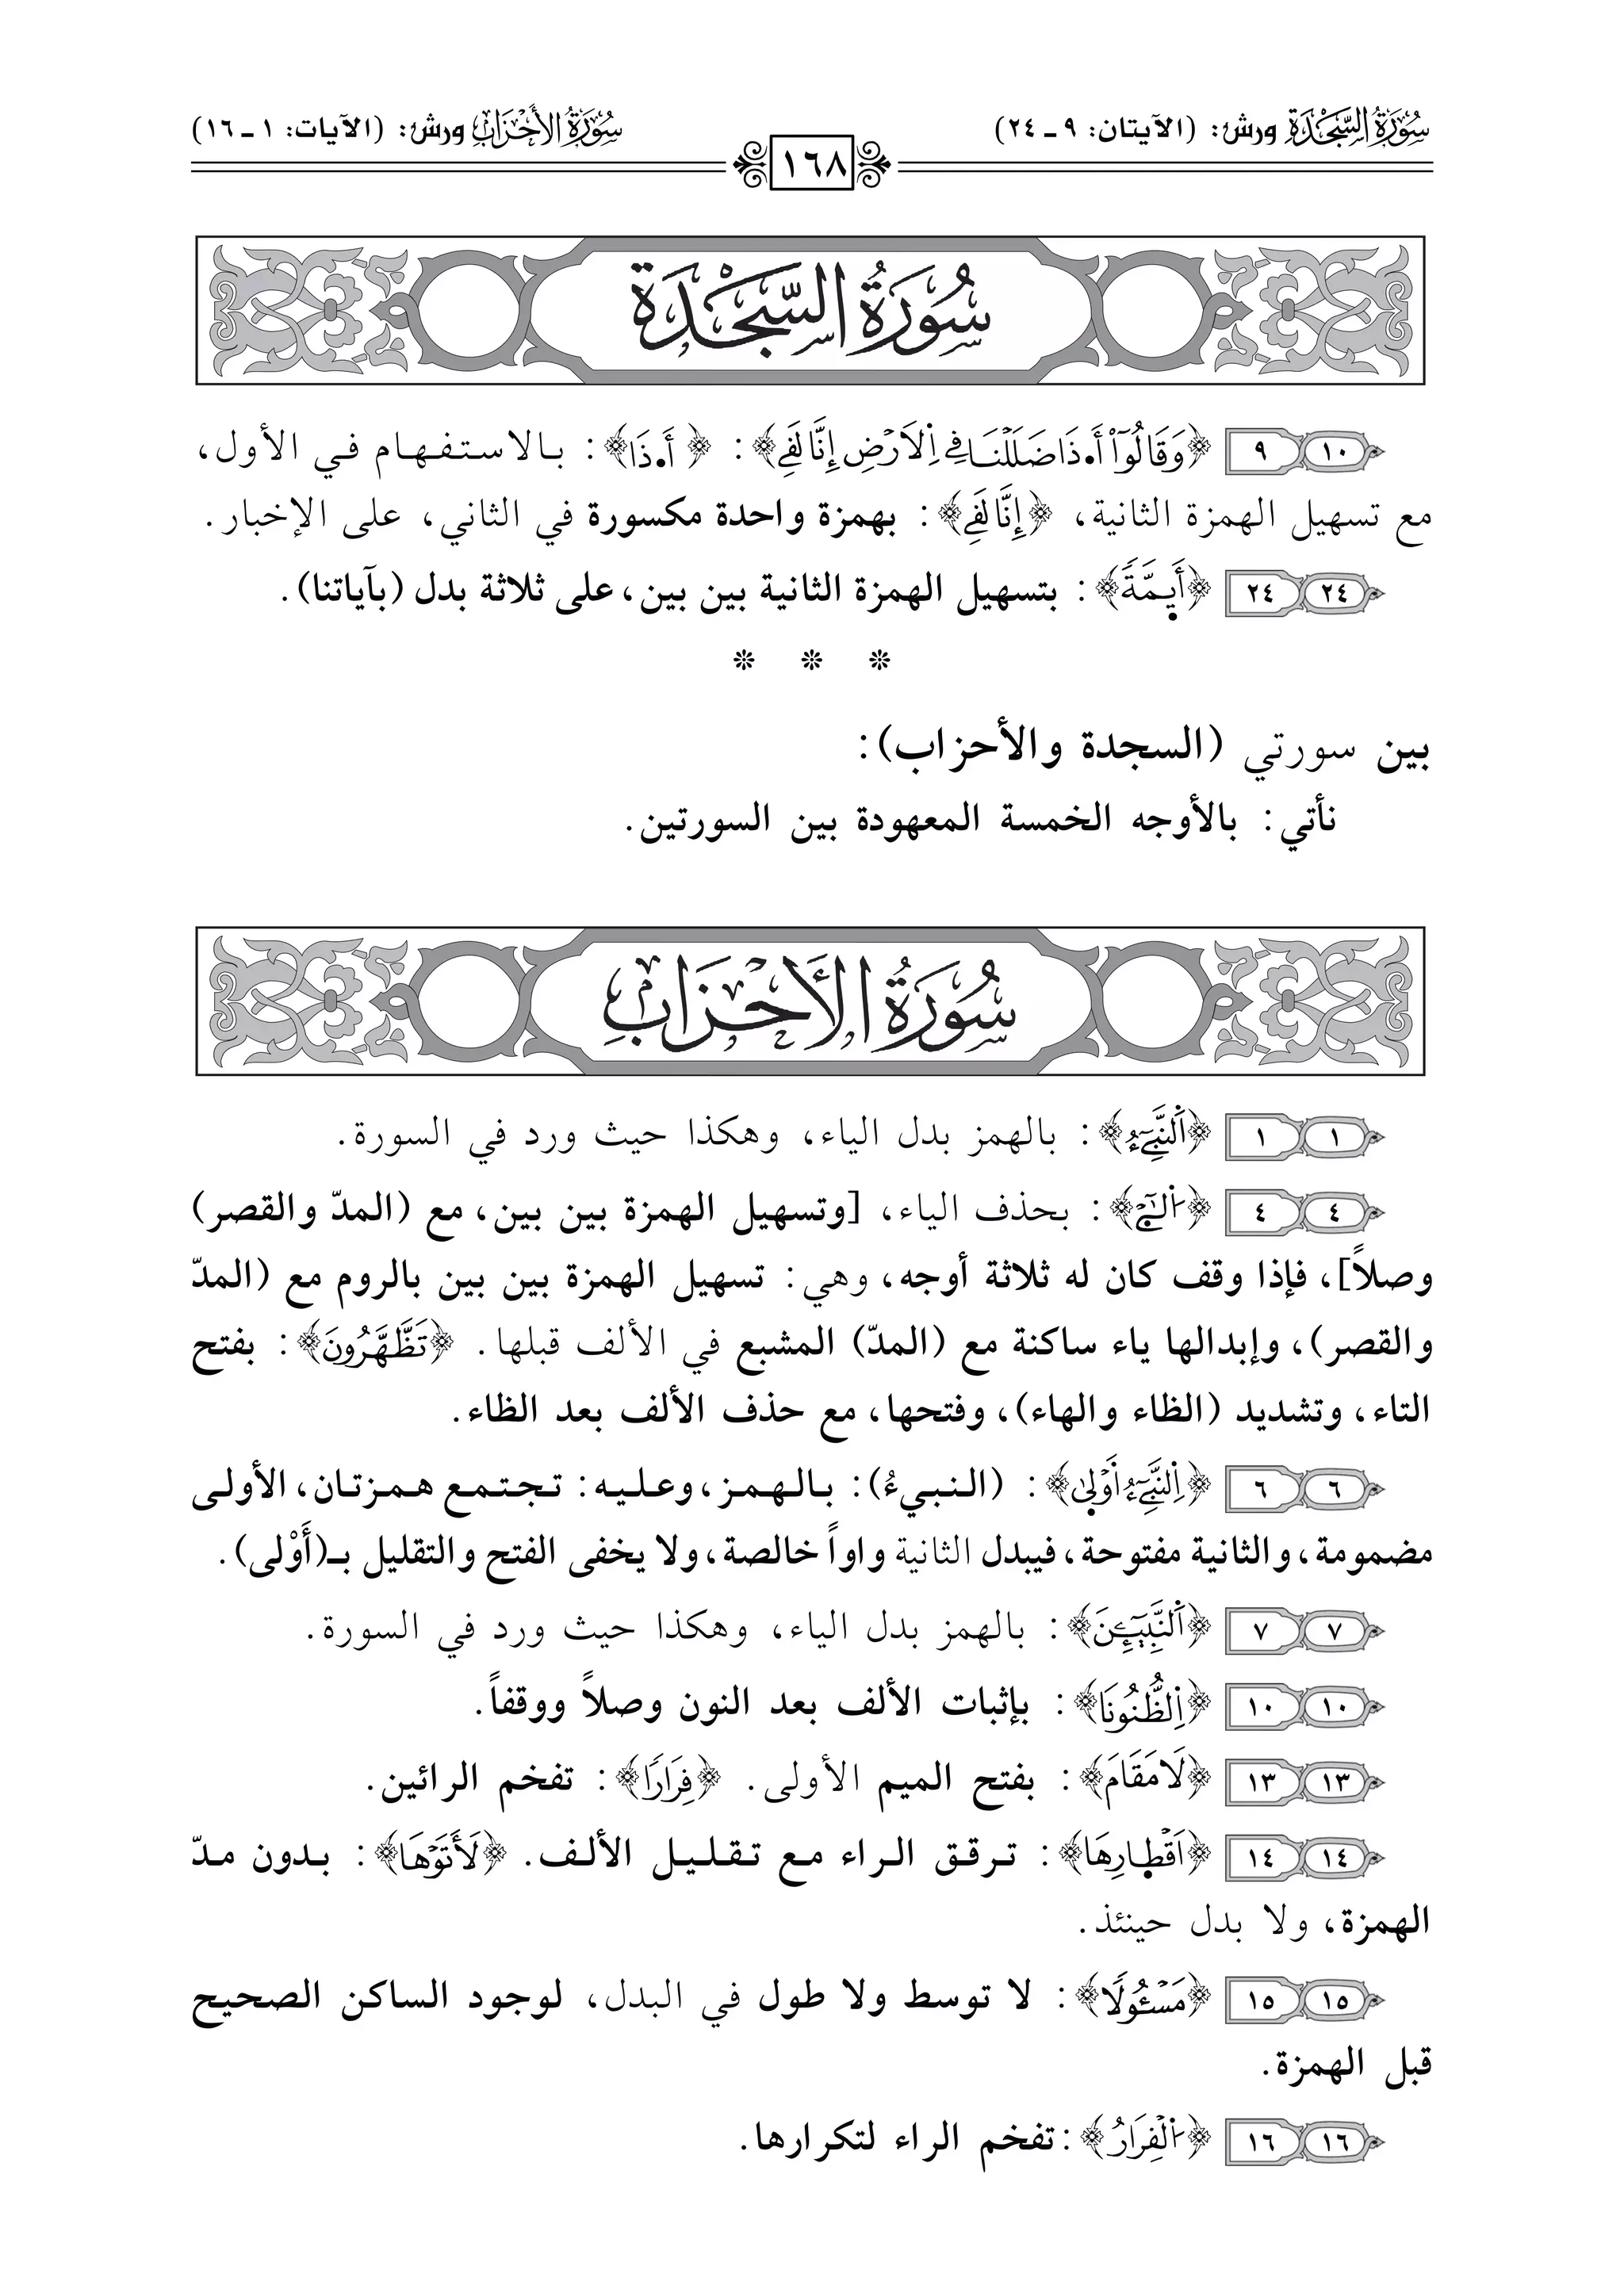 سُورَةُ السَّجْدَةِ ورش: (الآيتان: ٩ ـ ٢٤)
سُورَةُ الأَحْزَابِ ورش: (الآيات: ١ ـ ١٦)
١٦٨
سُورَةُ السَّجْدَةِ
١٠ ٩ ﴿وَقَالُوٓاْ أَ•ذَا ضَلَلْنَا فِے اِلَارْضِ إِنَّا لَفِے﴾: ﴿أَ•ذَا﴾: بالاستفهام في الأول،
مع تسهيل الهمزة الثانية، ﴿إِنَّا لَفِے﴾: بهمزة واحدة مكسورة في الثاني، على الإخبار.
٢٤ ٢٤ ﴿أَيِمَّةً﴾: بتسهيل الهمزة الثانية بين بين، على ثلاثة بدل (بآياتنا).
❊ ❊ ❊
بين سورتي (السجدة والأحزاب):
نأتي: بالأوجه الخمسة المعهودة بين السورتين.
سُورَةُ الأَحْزَابِ
١ ١ ﴿اَ۬لنَّبِيٓءُ﴾: بالهمز بدل الياء، وهكذا حيث ورد في السورة.
٤ ٤ ﴿اُ۬لَٰٓـِٔے﴾: بحذف الياء، [وتسهيل الهمزة بين بين، مع (المدّ والقصر)
وصلاً]، فإذا وقف كان له ثلاثة أوجه، وهي: تسهيل الهمزة بين بين بالروم مع (المدّ
والقصر)، وإبدالها ياء ساكنة مع (المدّ) المشبع في الألف قبلها. ﴿تَظَّهَّرُونَ﴾: بفتح
التاء، وتشديد (الظاء والهاء)، وفتحها، مع حذف الألف بعد الظاء.
٦ ٦ ﴿اِ۬لنَّبِيٓءُ أَوْلَىٰ﴾: (النبيءُ): بالهمز، وعليه: تجتمع همزتان، الأولى
مضمومة، والثانية مفتوحة، فيبدل الثانية واواً خالصة، ولا يخفى الفتح والتقليل بـ(أَوْلى).
٧ ٧ ﴿اَ۬لنَّبِيٓـِٕۧنَ﴾: بالهمز بدل الياء، وهكذا حيث ورد في السورة.
١٠ ١٠ ﴿اِ۬لظُّنُونَا﴾: بإثبات الألف بعد النون وصلاً ووقفاً.
١٣ ١٣ ﴿لَا مَقَامَ﴾: بفتح الميم الأولى. ﴿فِرَارًا﴾: تفخم الرائين.
١٤ ١٤ ﴿أَقْطَارِهَا﴾: ترقق الراء مع تقليل الألف. ﴿لَأَتَوْهَا﴾: بدون مدّ
الهمزة، ولا بدل حينئذ.
١٥ ١٥ ﴿مَسْـُٔولًا﴾: لا توسط ولا طول في البدل، لوجود الساكن الصحيح
قبل الهمزة.
١٦ ١٦ ﴿اُ۬لْفِرَارُ﴾: تفخم الراء لتكرارها.